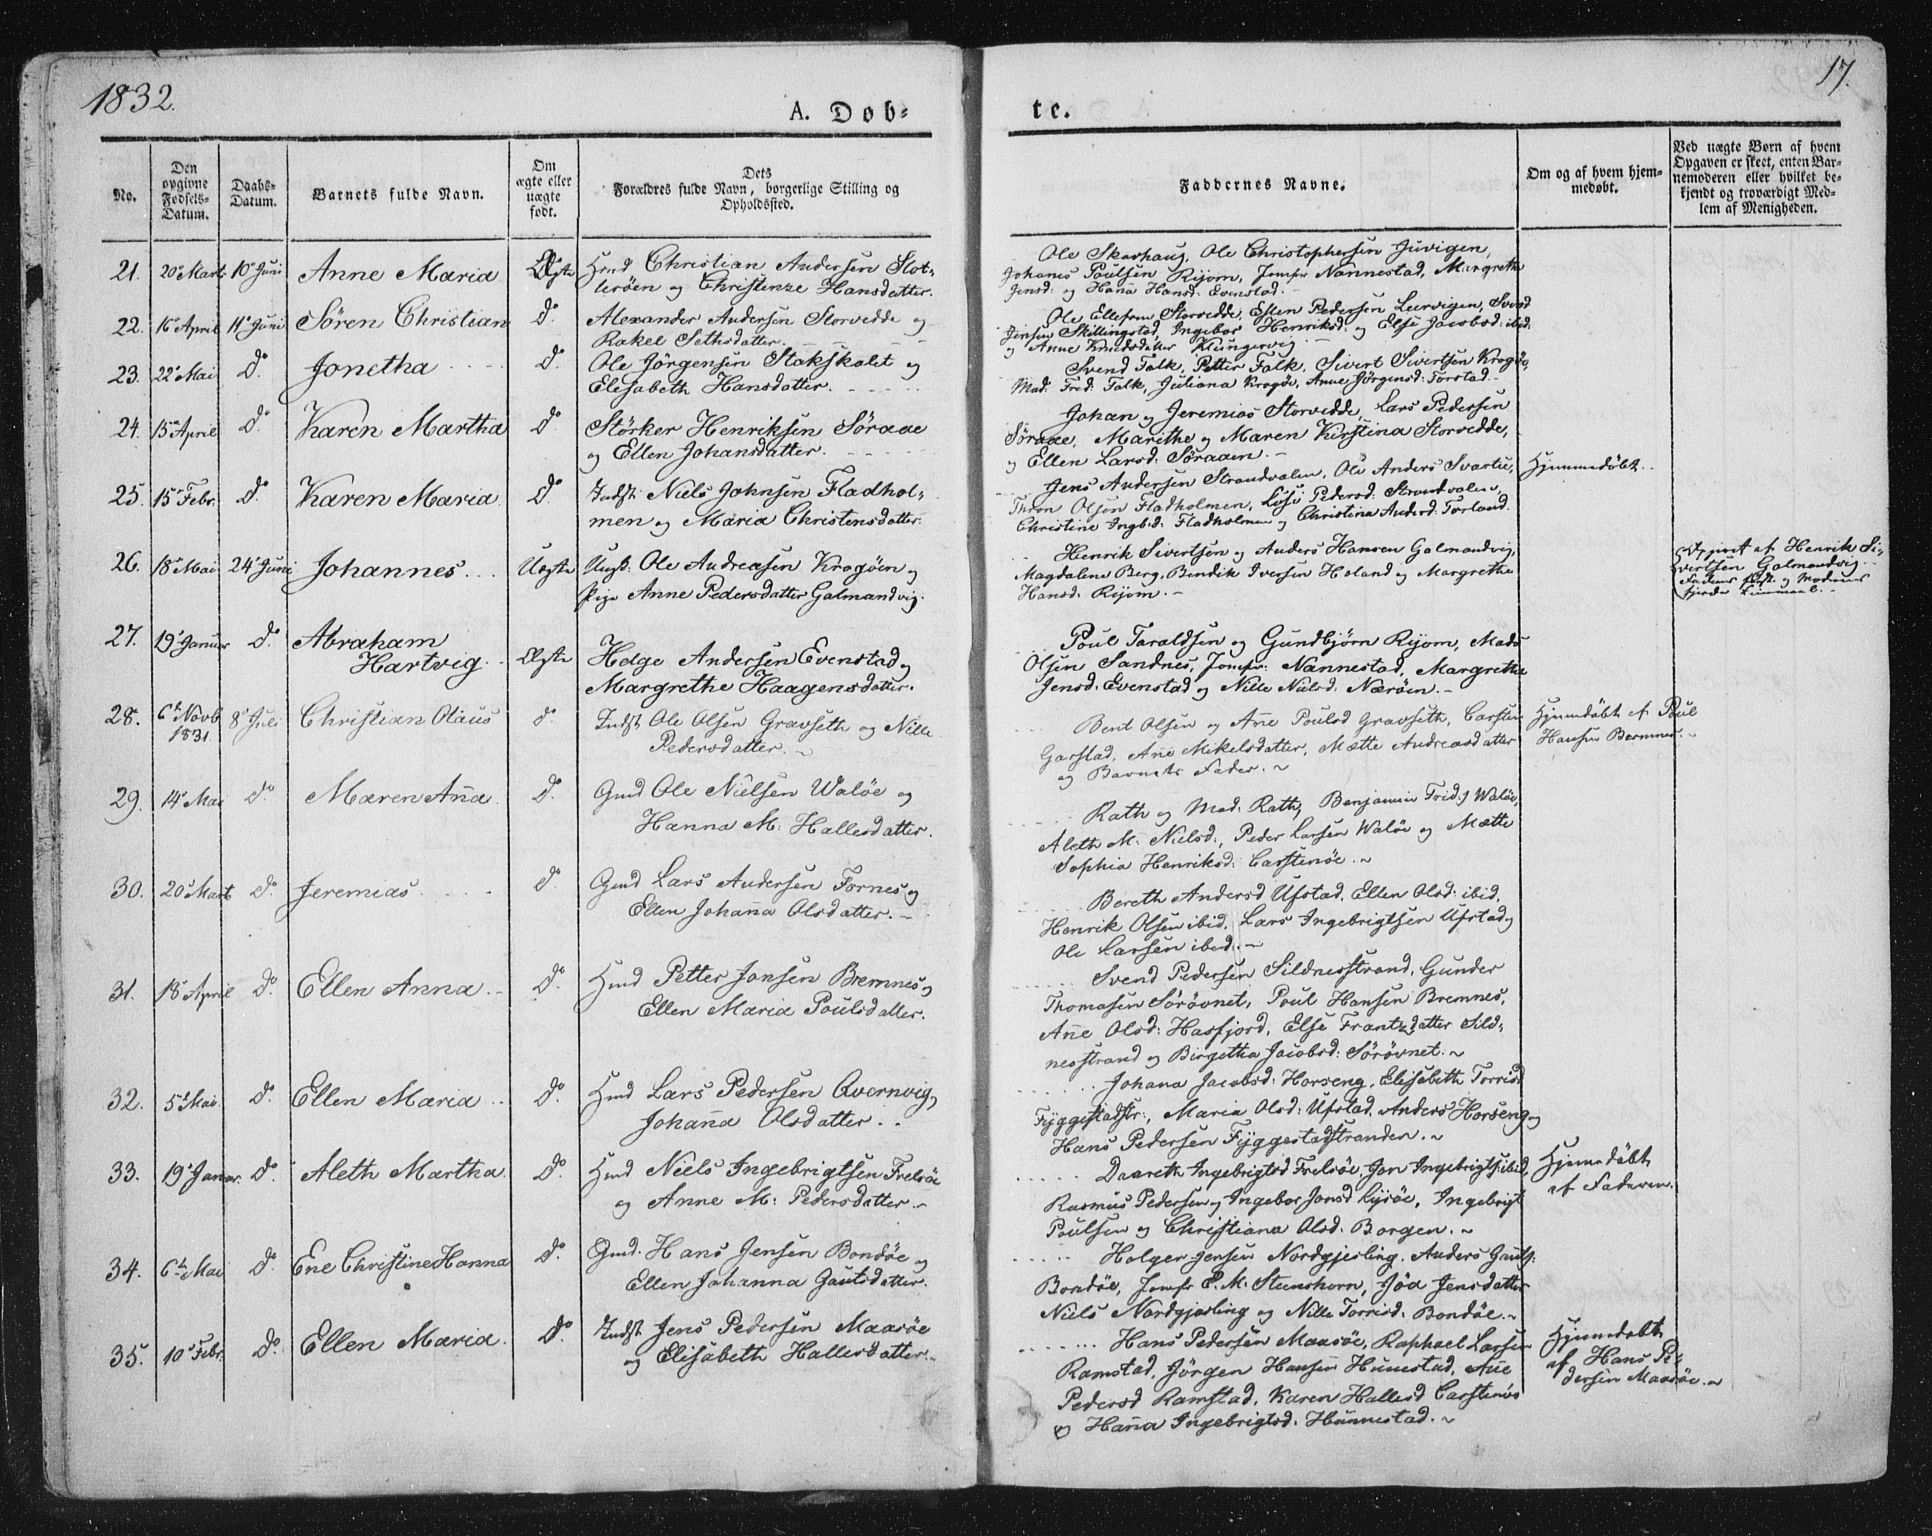 1832.
A. Døb-
te.
17.
No.
Den opgivne Fødsels-Datum.
Daabs-Datum.
Barnets fulde Navn.
Om ægte eller uægte født.
Dets Forældres fulde Navn, borgerlige Stilling og Opholdssted.
Faddernes Navne.
Om og af hvem hjem-medøbt.
Ved uægte Børn af hvem Opgaven er skeet, enten Bar-nemoderen eller hvilket be-kjendt og troværdigt Med-lem af Menigheden.
21. 20de Mart 10de Juni Anne Maria Ægte Hmd Christian Andersen Slot-
terøen og Christenze Hansdatter.
Ole Skarhaug, Ole Christophersen Juvigen,
Johanes Poulsen Rijom, Jomfr Nannestad, Margrethe
Jensd: og Hana Hansd: Evenstad.
22. 16 April 11te Juni Sören Christian do. Alexander Andersen Storvedde og
Rakel Sethsdatter.
Ole Ellefsen Storvedde, Esten Pedersen Leervigen, Svend
Jensen Skillingstad, Ingebor Henriksd: og Else Jacobsd: ibid.
og Anne Knudsdatter Klungervig.
23. 22de Mai do. Jonetha do. Ole Jörgensen Stakskalet og
Elisabeth Hansdatter.
Svend Falk, Petter Falk, Sivert Sivertsen Krogöe,
Mad. Fred: Falk, Juliana Krogöe, Anne Jörgensd: Torstad.
24. 15de April do. Karen Martha do. Störker Henriksen Söraae
og Ellen Johansdatter.
Johan og Jeremias Storvedde, Lars Pedersen
Söraae, Marithe og Maren Kirstina Storvedde,
og Ellen Larsd: Söraaen.
25. 15de Febr. do. Karen Maria do. Indst. Niels Johnsen Fladhol-
men og Maria Christensdatter.
Jens Andersen Strandvalen, Ole Anders Svartie,
Thron Olsen Fladholmen, Lise Pedersd: Strandvalen,
Christine Ingb.d: Fladholmen og Christina Andersd: Torland.
Hjemmedöbt.
26. 18de Mai 24de Juni Johannes Uægte Ungk. Ole Andreasen Krogöen og
Pige Anne Pedersdatter Galmandvig.
Henrik Sivertsen og Anders Hansen Galmandvig,
Magdalene Berg, Bendik Iversen Holand og Margrethe
Hansd: Rijom.
Opgivet af Henrik Si-
vertsen Galmandvig.
Faderens første og Moderens
fjerde Leiermaal.
27. 19de Januar do. Abraham
Hartvig Ægte Helge Andersen Evenstad og
Margrethe Haagensdatter.
Poul Taraldsen og Gundbjørn Rijom, Mads
Olsen Sandnes, Jomfr: Nannestad, Margrethe
Jensd: Evenstad og Nille Nielsd: Næröen.
28. 6te Novb 1831. 8de Juli Christian Olaus do. Indst Ole Olsen Gravseth og Nille
Pedersdatter.
Bent Olsen og Ane Poulsd Gravseth, Carsten
Garstad, Ane Mikelsdatter, Mætte Andreasdatter
og Barnets Fader.
Hjemedöbt af Poul
Hansen Bremnes.
29. 14de Mai do. Maren Anna do. Gmd Ole Nielsen Walöe og
Hanna M: Hallesdatter.
Rath og Mad: Rath, Benjamin Frid:s Walöe,
Aleth M: Nielsd:, Peder Larsen Walöe og Mætte
Sophia Henriksd: Carstenöe.
30. 20de Mart do. Jeremias do. Gmd Lars Andersen Fornes og
Ellen Johana Olsdatter.
Bereth Andersd Ufstad, Ellen Olsd: ibid,
Henrik Olsen ibid, Lars Ingebrigtsen Ufstad og
Ole Larsen ibid.
31. 18de April do. Ellen Anna do. Hmd Petter Jonsen Bremnes og
Ellen Maria Poulsdatter.
Svend Pedersen Sildnesstrand, Gunder
Thomasen Sörövnet, Poul Hansen Bremnes,
Ane Olsd: Hasfjord, Else Frantzdatter Sild-
nesstrand og Birgetha Jacobsd: Sörövnet.
32. 5te Mai do. Ellen Maria do. Hmd Lars Pedersen Qvernvig og
Johana Olsdatter.
Johana Jacobsd: Horseng, Elisabeth Torrisd
Fyggestadstr:, Maria Olsd: Ufstad, Anders Horseng og
Hans Pedersen Fyggestadstranden.
33. 19de Januar. do. Aleth Martha do. Hmd Niels Ingebrigtsen Frelsöe
og Anne M: Pedersdatter.
Daareth Ingebrigtsd Frelsöe, Jon Ingebrigts: ibid,
Rasmus Pedersen og Ingebor Jonsd Lysöe, Ingebrigt
Poulsen og Christiana Olsd: Borgen.
Hjemedöbt
af Faderen.
34. 6te Mai do. Ene Christine Hanna do. Gmd. Hans Jensen Bondöe og
Ellen Johanna Gautsdatter.
Holger Jensen Nordgjesling, Anders Gauts:
Bondöe, Jomfr E. M. Steenshorn, Jöa Jensdatter
Niels Nordgjesling og Nille Torrisd: Bondöe.
35. 10de Febr. do. Ellen Maria do. Indst Jens Pedersen Maasöe
og Elisabeth Hallesdatter.
Hans Pedersen Maasöe, Raphael Larsen
Ramstad, Jörgen Hansen Hunestad, Ane
Pedersd Ramstad, Karen Hallesd Carstenöe
og Hana Ingebrigtsd: Hunnestad.
Hjemedöbt
af Hans Pe-
dersen Maasöe.